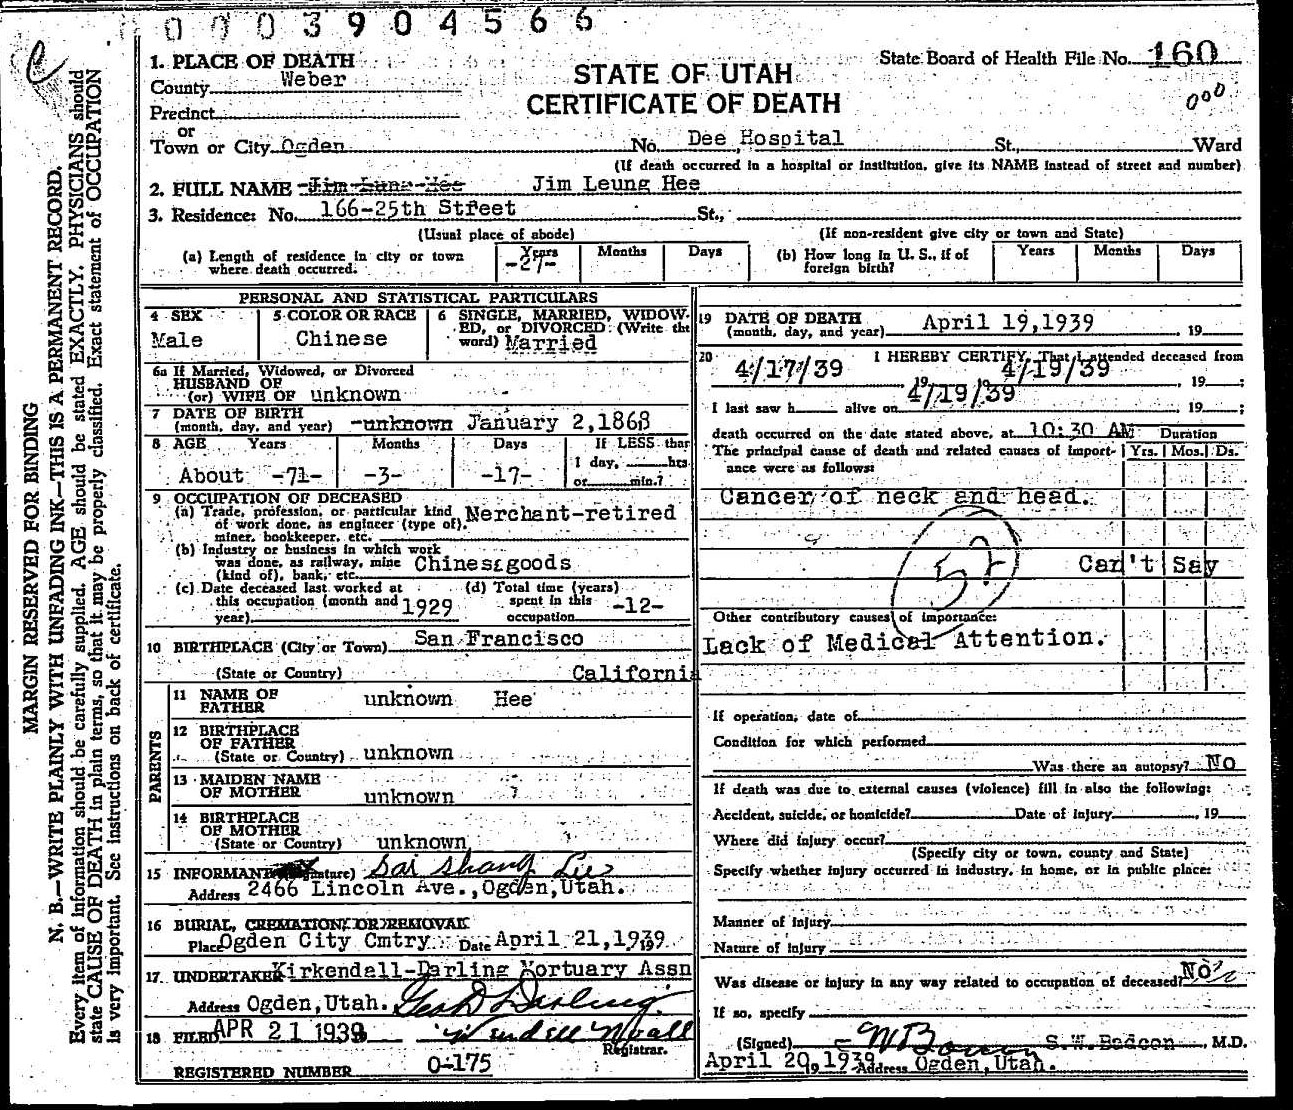 0003904566
1. PLACE OF DEATH
County Weber
Precinct
or
Town or City Ogden No. Dee Hospital St., Ward
(If death occurred in a hospital or institution, give its NAME instead of street and number)
STATE OF UTAH
CERTIFICATE OF DEATH
State Board of Health File No. 160
000
2. FULL NAME Jim Lung Hee Jim Leung Hee
3. Residence: No. 166-25th Street St.,
(Usual place of abode) (If non-resident give city or town and State)
(a) Length of residence in city or town where death occurred. Years -27- Months Days
(b) How long in U. S., if of foreign birth? Years Months Days
PERSONAL AND STATISTICAL PARTICULARS
4 SEX Male
5 COLOR OR RACE Chinese
6 SINGLE, MARRIED, WIDOWED, or DIVORCED: (Write the word) Married
6a If Married, Widowed, or Divorced
HUSBAND OF
(or) WIFE OF unknown
7 DATE OF BIRTH
(month, day, and year) -unknown January 2,1868
8 AGE Years Months Days If LESS than
About -71- -3- -17- 1 day, hrs
or min.?
9 OCCUPATION OF DECEASED
(a) Trade, profession, or particular kind of work done, as engineer (type of), miner, bookkeeper, etc. Merchant-retired
(b) Industry or business in which work was done, as railway, mine (kind of), bank, etc. Chinese goods
(c) Date deceased last worked at this occupation (month and year) 1929
(d) Total time (years) spent in this occupation -12-
10 BIRTHPLACE (City or Town) San Francisco
(State or Country) California
PARENTS
11 NAME OF FATHER unknown Hee
12 BIRTHPLACE OF FATHER
(State or Country) unknown
13 MAIDEN NAME OF MOTHER unknown
14 BIRTHPLACE OF MOTHER
(State or Country) unknown
15 INFORMANT Sai Shang Lee
Address 2466 Lincoln Ave., Ogden,Utah.
16 BURIAL, CREMATION, OR REMOVAL
Place Ogden City Cmtry Date April 21,1939
17. UNDERTAKER Kirkendall-Darling Mortuary Assn
Address Ogden,Utah. Geo D Darling
18 FILED APR 21 1939
Registrar.
REGISTERED NUMBER 0-175
19 DATE OF DEATH
(month, day, and year) April 19,1939 19
20 I HEREBY CERTIFY, That I attended deceased from
4/17/39 , 19 4/19/39 , 19 ;
I last saw h alive on 4/19/39 , 19 ;
death occurred on the date stated above, at 10:30 AM Duration
The principal cause of death and related causes of importance were as follows: Yrs. Mos. Ds.
Cancer of neck and head.
52
Can't Say
Other contributory causes of importance:
Lack of Medical Attention.
If operation, date of
Condition for which performed
Was there an autopsy? No
If death was due to external causes (violence) fill in also the following:
Accident, suicide, or homicide? Date of injury , 19
Where did injury occur?
(Specify city or town, county and State)
Specify whether injury occurred in industry, in home, or in public place:
Manner of injury
Nature of injury
Was disease or injury in any way related to occupation of deceased? No
If so, specify
(Signed) S.W. Badcon , M.D.
April 20, 1939 Address Ogden,Utah.
MARGIN RESERVED FOR BINDING
N. B.—WRITE PLAINLY WITH UNFADING INK—THIS IS A PERMANENT RECORD.
Every item of information should be carefully supplied. AGE should be stated EXACTLY. PHYSICIANS should
state CAUSE OF DEATH in plain terms, so that it may be properly classified. Exact statement of OCCUPATION
is very important. See instructions on back of certificate.